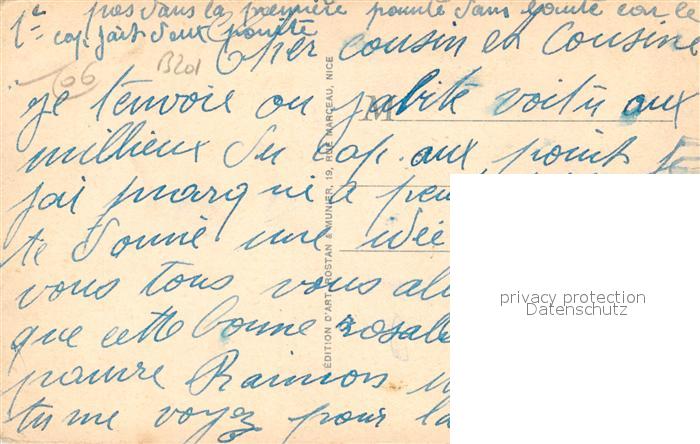 1e pas dans la première pointe dans pointe car le
cap fait deux pointe
Cher cousin et Cousine
106
B201
je t'envoie ou jabite voitu aux
M
millieux du cap. aux point
jai marqué
te donne une idée
vous tous vous
que cette bonne
pauvre Raimon
tu me voyez pour la
ÉDITION D'ART, ROSTAN & MUNIER, 19, RUE MARCEAU, NICE
privacy protection
Datenschutz